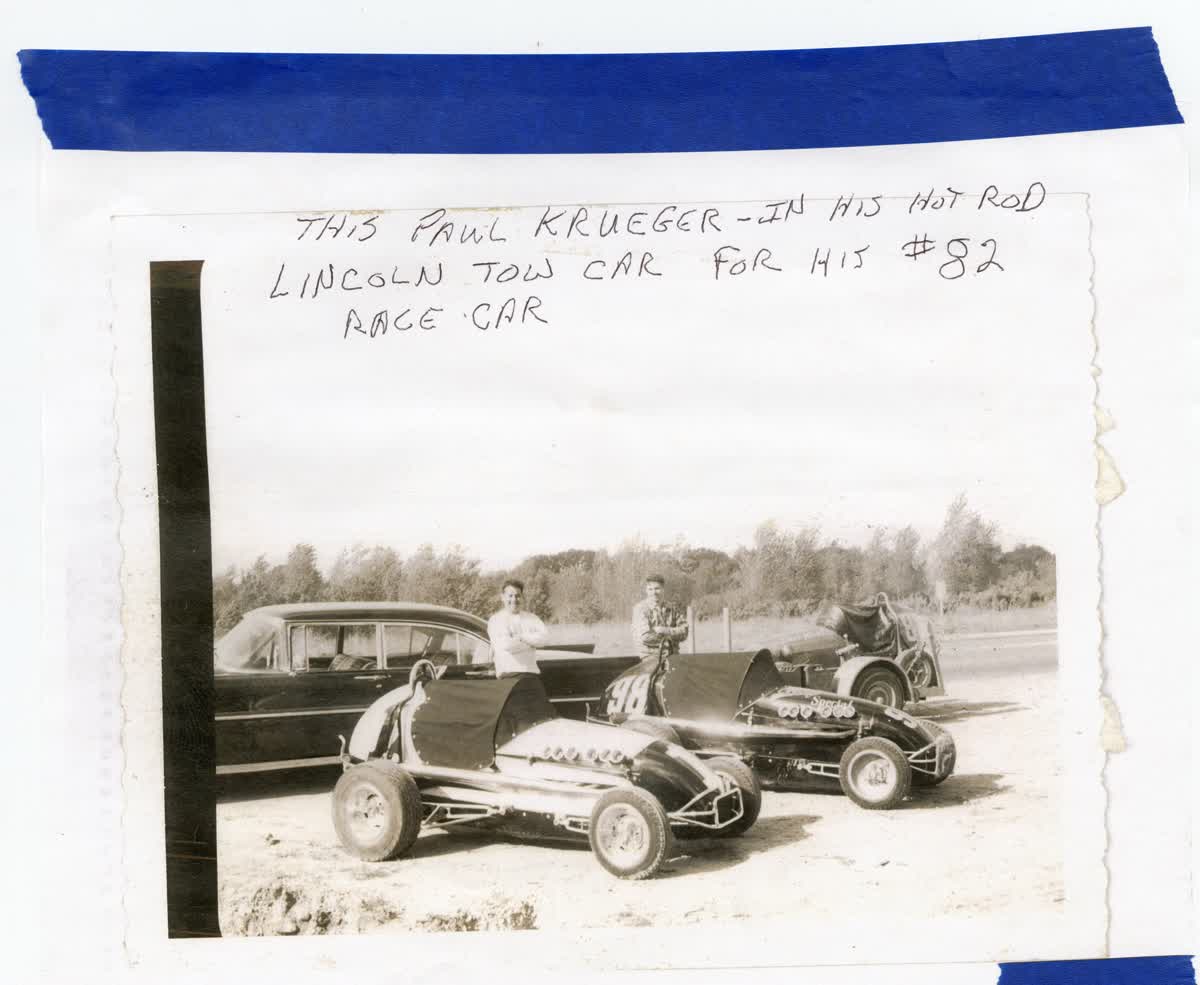 THIS PAUL KRUEGER - IN HIS HOT ROD
LINCOLN TOW CAR FOR HIS #82
RACE CAR
98
Special